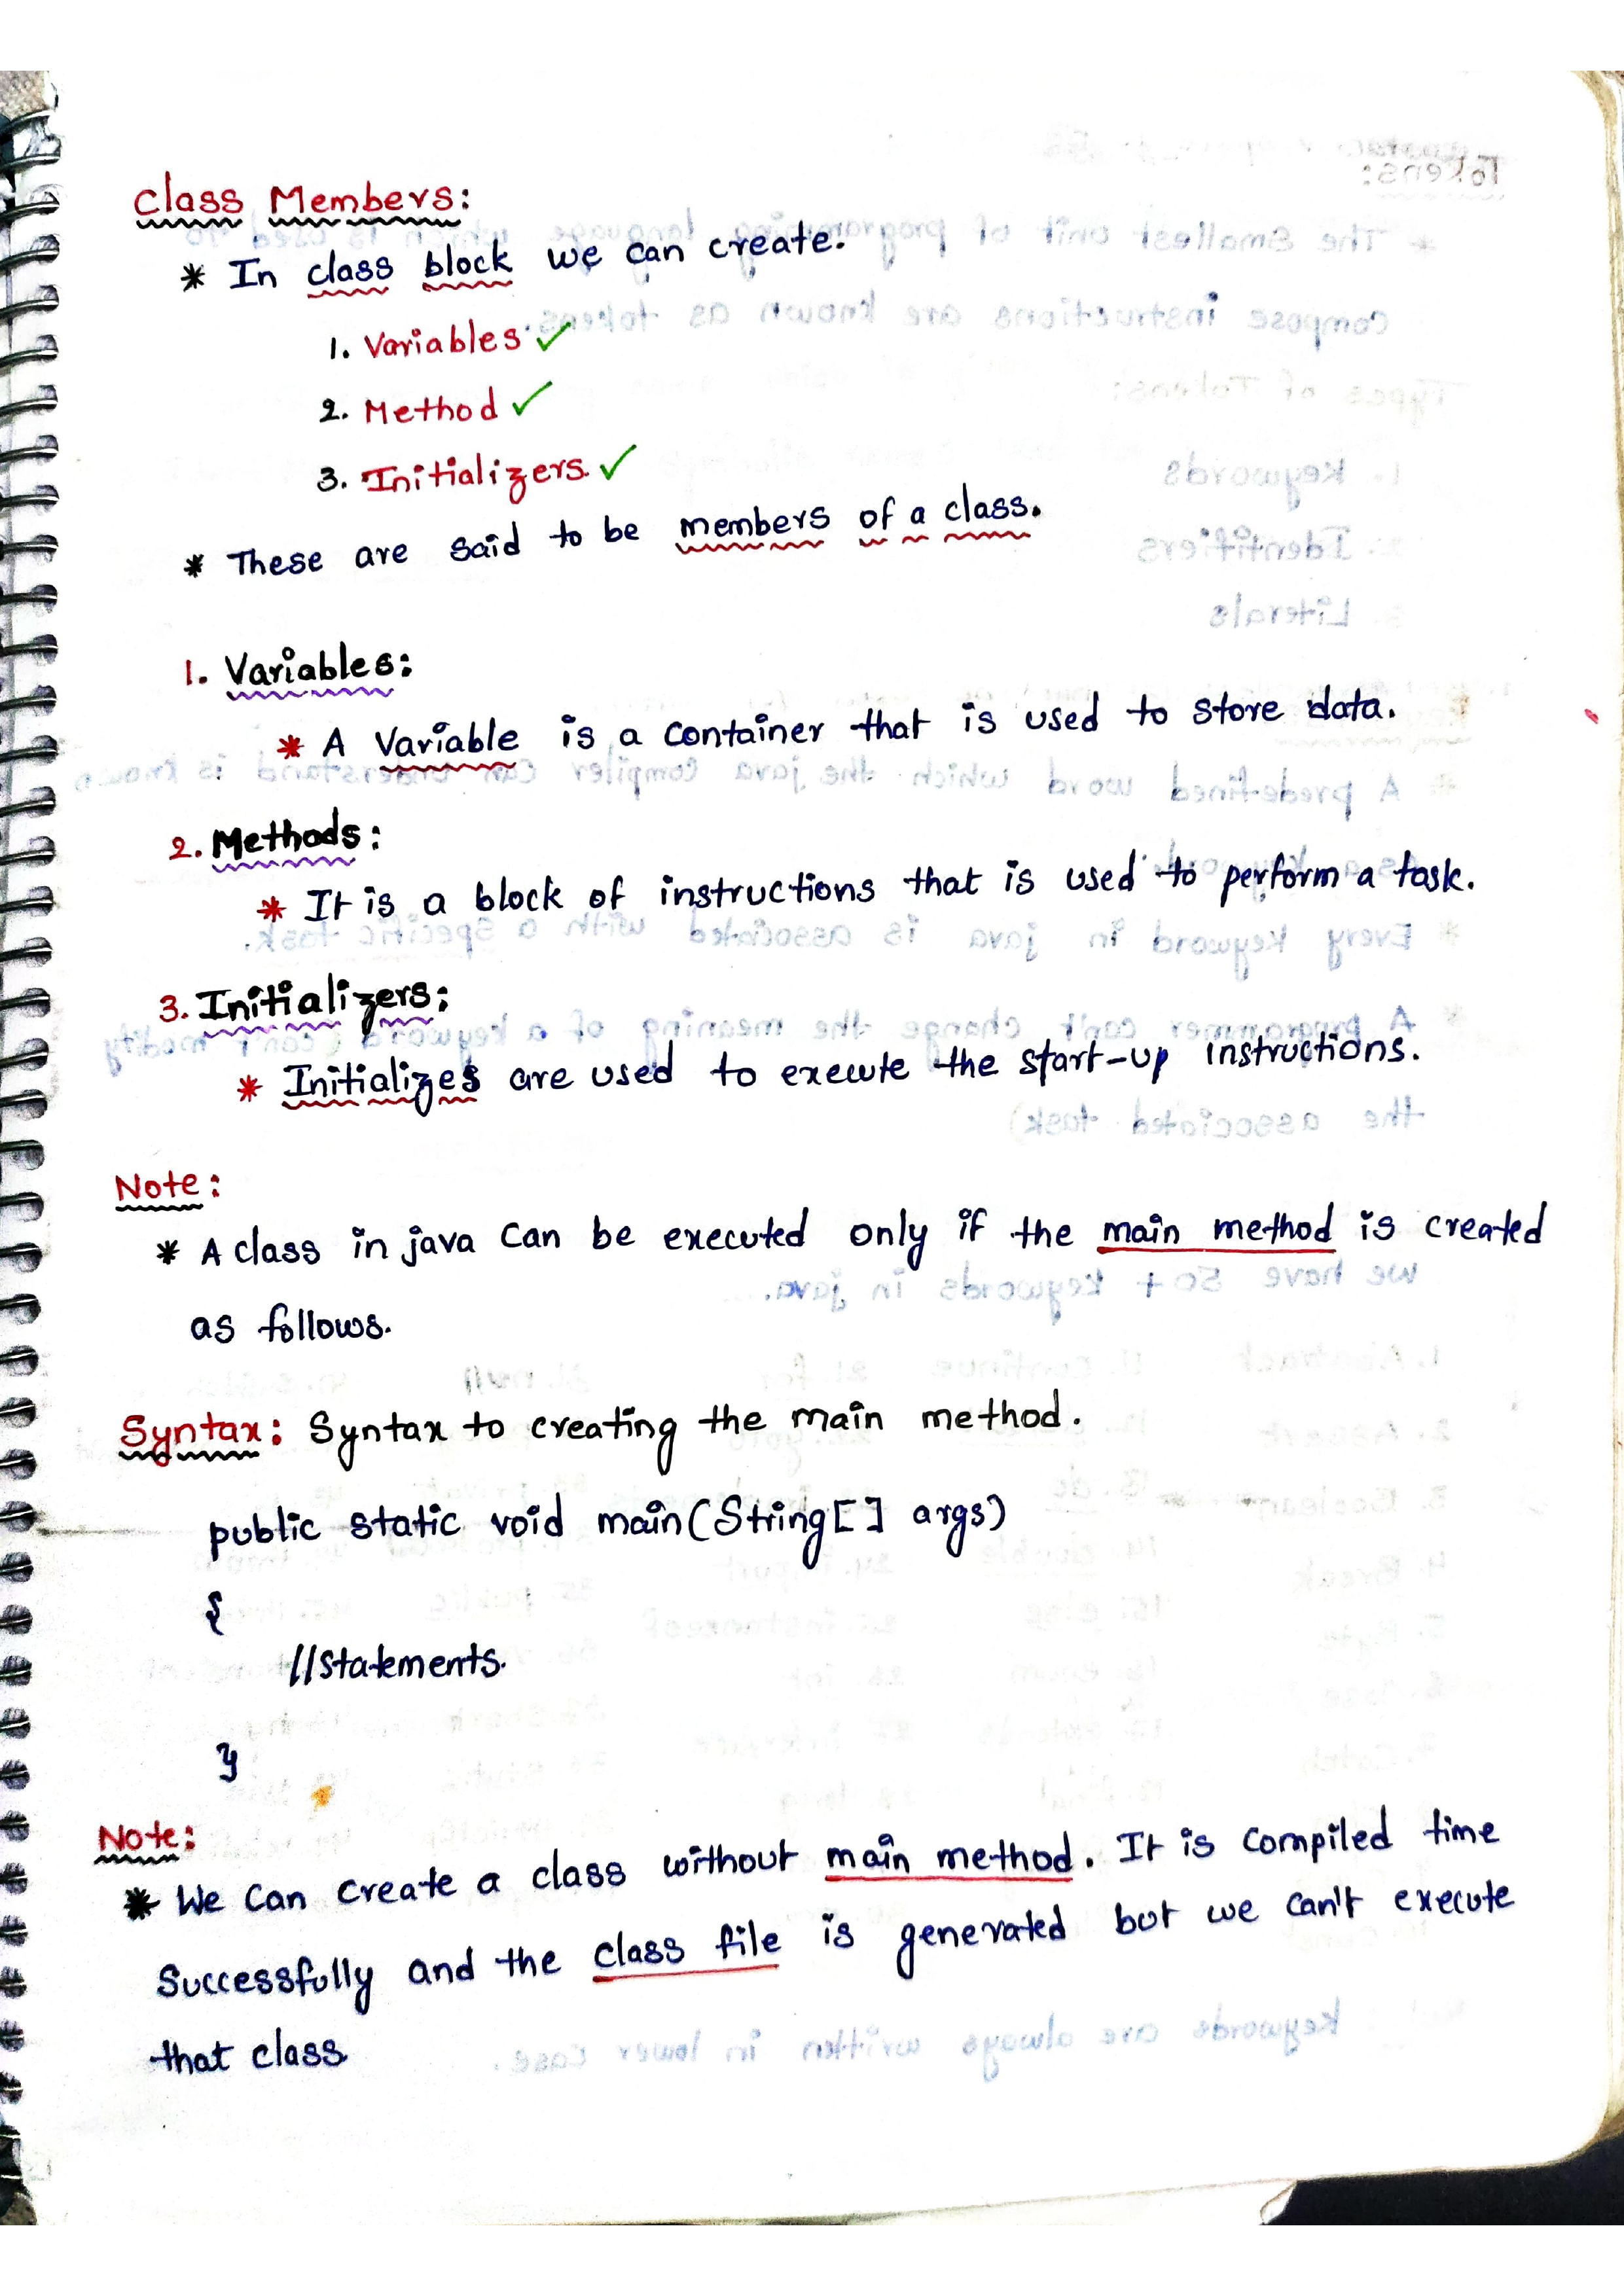 Class Members:
* In class block we can create.
1. Variables. ✓
2. Method ✓
3. Initializers. ✓
* These are said to be members of a class.
1. Variables:
* A Variable is a container that is used to store data.
2. Methods:
* It is a block of instructions that is used to perform a task.
3. Initializers:
* Initializes are used to execute the start-up instructions.
Note:
* A class in java can be executed only if the main method is created
as follows.
Syntax: Syntax to creating the main method.
public static void main(String[] args)
{
//statements.
}
Note:
* We can create a class without main method. It is compiled time
Successfully and the class file is generated but we can't execute
that class